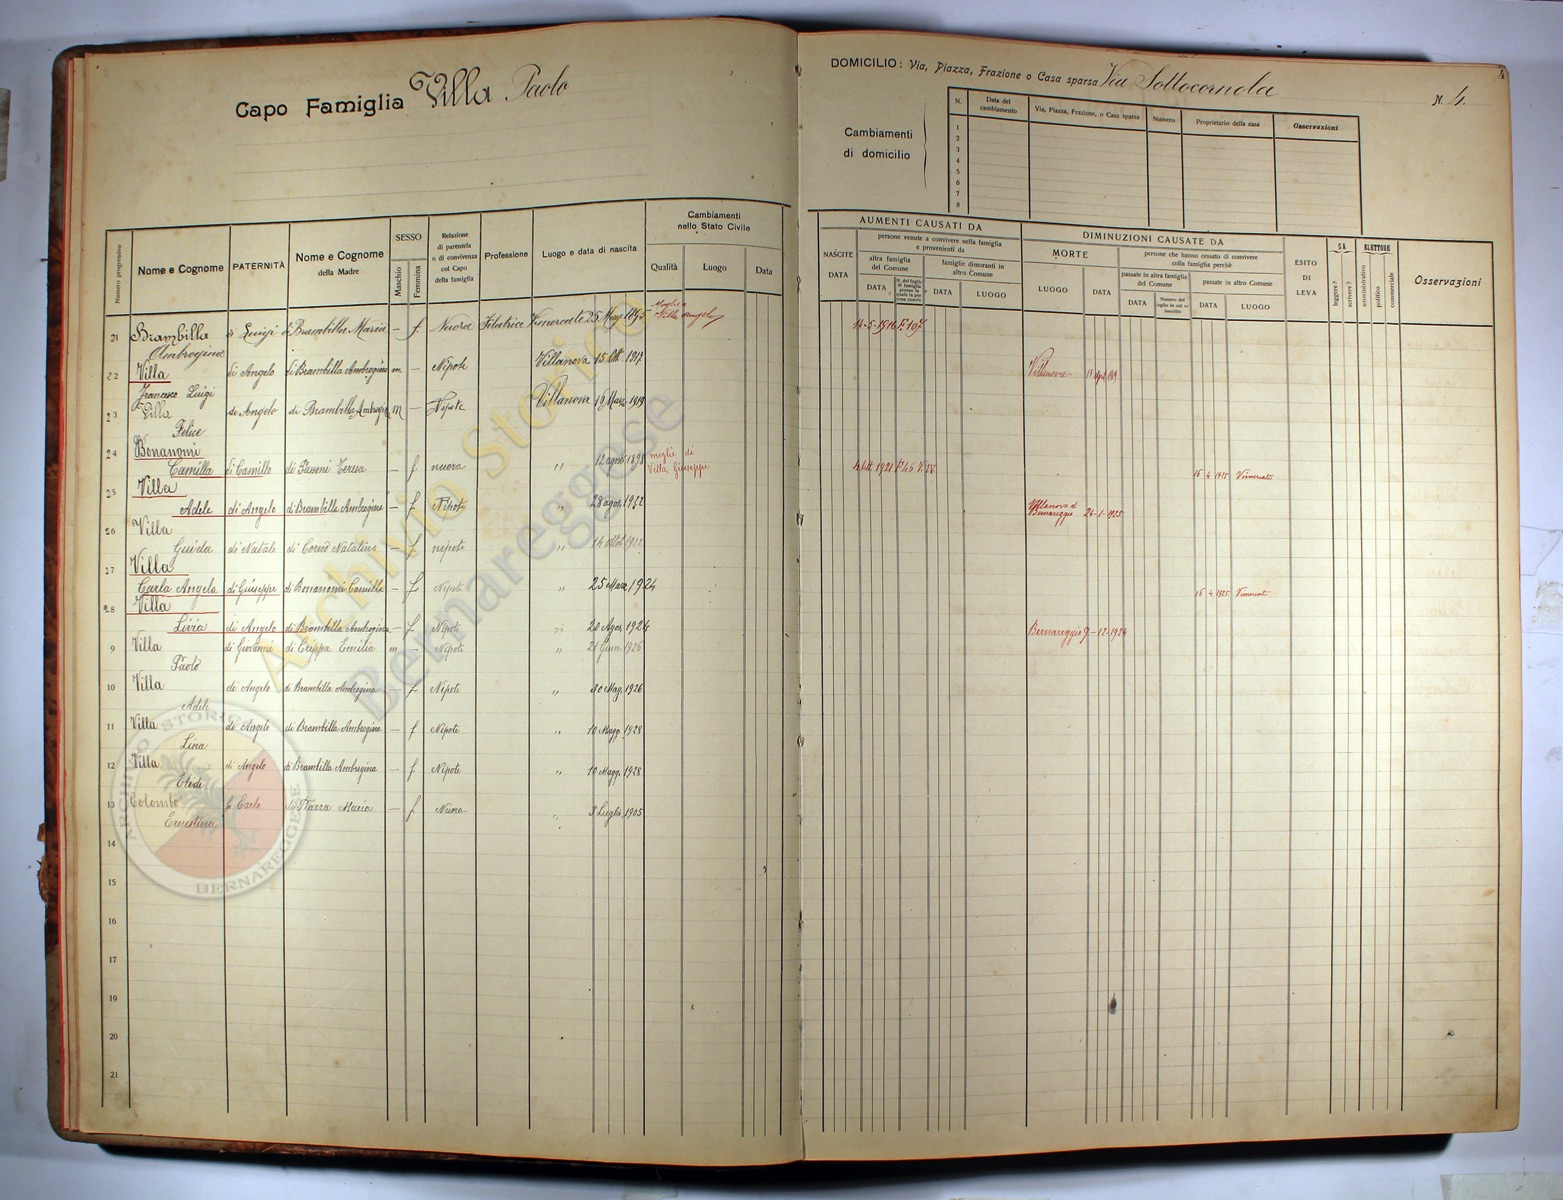 Capo Famiglia Villa Paolo
DOMICILIO: Via, Piazza, Frazione o Casa sparsa Via Sottocornola
N. 4.
Cambiamenti
di domicilio
N.
Data del
cambiamento
Via, Piazza, Frazione, o Casa sparsa
Numero
Proprietario della casa
Osservazioni
1
2
3
4
5
6
7
8
Numero progressivo
Nome e Cognome
PATERNITÀ
Nome e Cognome
della Madre
SESSO
Maschio
Femmina
Relazione
di parentela
o di convivenza
col Capo
della famiglia
Professione
Luogo e data di nascita
Cambiamenti
nello Stato Civile
Qualità
Luogo
Data
AUMENTI CAUSATI DA
NASCITE
DATA
persone venute a convivere nella famiglia
e provenienti da
altra famiglia
del Comune
DATA
famiglie dimoranti in
altro Comune
DATA
LUOGO
DIMINUZIONI CAUSATE DA
MORTE
LUOGO
DATA
persone che hanno cessato di convivere
colla famiglia perchè
passate in altra famiglia
del Comune
DATA
passate in altro Comune
DATA
LUOGO
ESITO
DI
LEVA
SA
leggere?
scrivere?
ELETTORE
amministrativo
politico
commerciale
Osservazioni
21 Brambilla Ambrogina Luigi di Brambilla Maria — f Nuora Filatrice Vimercate 25 Mag. 1895 Moglie a Villa Angelo 14-5-1916 F. 107
22 Villa Francesco Luigi di Angelo di Brambilla Ambrogina m — Nipote Villanova 15 Ott. 1917 Villanova
23 Villa Felice di Angelo di Brambilla Ambrogina m — Nipote Villanova Marzo 1919
24 Bonanomi Camilla di Camillo di Teresa — f nuora " 12 agosto 1898 moglie di Villa Giuseppe 1921 F. 46 16 4 1925 Vimercate
25 Villa Adele di Angelo di Brambilla Ambrogina — f Nipote " 28 agos. 1922 Villanova di Bernareggio 26-1-1925
26 Villa Guida di Natale di Natalina — f nipote " 14 ottob. 1922
27 Villa Carla Angela di Giuseppe di Bonanomi Camilla — f Nipote " 25 Marz. 1924 16 4 1925 Vimercate
28 Villa Livia di Angelo di Brambilla Ambrogina — f Nipote " 20 Agos. 1924 Bernareggio 9-12-1924
9 Villa Paolo di Giovanni di Crippa Emilia m — Nipote " 21 Genn. 1926
10 Villa Adele di Angelo di Brambilla Ambrogina f Nipote " 30 Mag. 1926
11 Villa Lina di Angelo di Brambilla Ambrogina — f Nipote " 10 Magg. 1928
12 Villa di Angelo di Brambilla Ambrogina — f Nipote " 10 Magg. 1928
13 Colombo Ernestina fu Carlo di Maria — f Nuora " 3 Luglio 1905
14
15
16
17
18
19
20
21
Archivio Storico
Bernareggese
ARCHIVIO STORICO
BERNAREGGESE